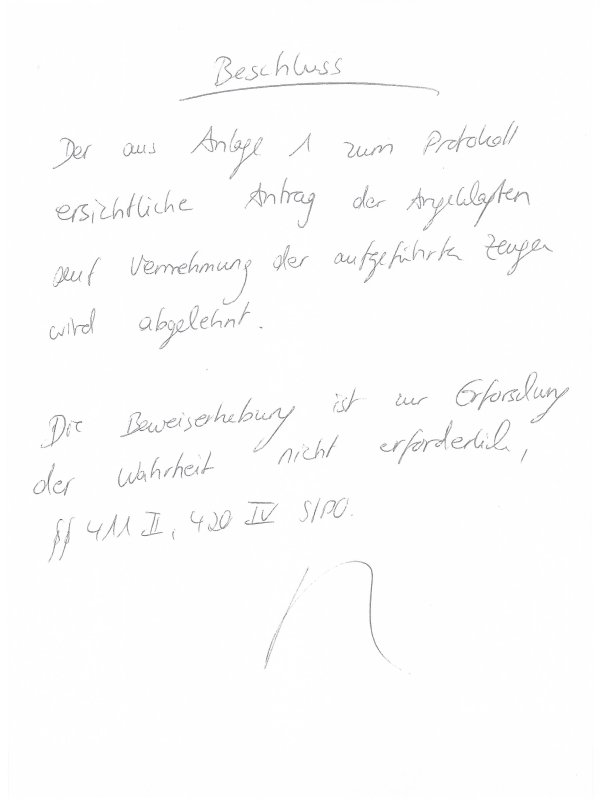 Beschluss
Der aus Anlage 1 zum Protokoll
ersichtliche Antrag der Angeklagten
auf Vernehmung der aufgeführten Zeugen
wird abgelehnt.
Die Beweiserhebung ist zur Erforschung
der Wahrheit nicht erforderlich,
§§ 411 II, 420 IV StPO.